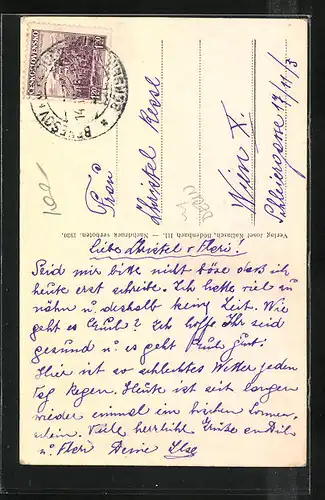 ČESKOSLOVENSKO
BENEŠOV
100-
Frau
Christel Ressl
Wien X.
17/11/3
Verlag Josef Kaltnach, Bodenbach III. — Nachdruck verboten. 1930.
Liebe Christel u. Heri!
Seid mir bitte nicht böse daß ich
heute erst schreibe. Ich hatte viel zu
nähn u. deshalb keine Zeit. Wie
geht es Euch? Ich hoffe Ihr seid
gesund u. es geht Euch gut!
Hier ist so schlechtes Wetter jeden
Tag Regen. Heute ist seit langen
wieder einmal ein bischen Sonnen-
schein. Viele herzliche Grüße an Dich
u. Heri Deine Ilse